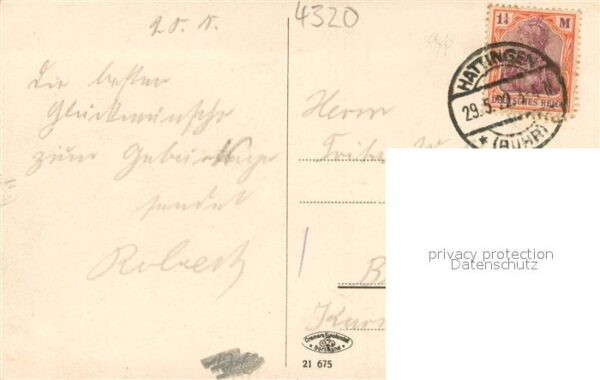 4320
Die besten
Glückwünsche
zum Geburtstage
sendet
Robert
1¼ M
DEUTSCHES REICH
HATTINGEN
29.5.
(RUHR)
Herrn
Fritz
privacy protection
Datenschutz
21 675